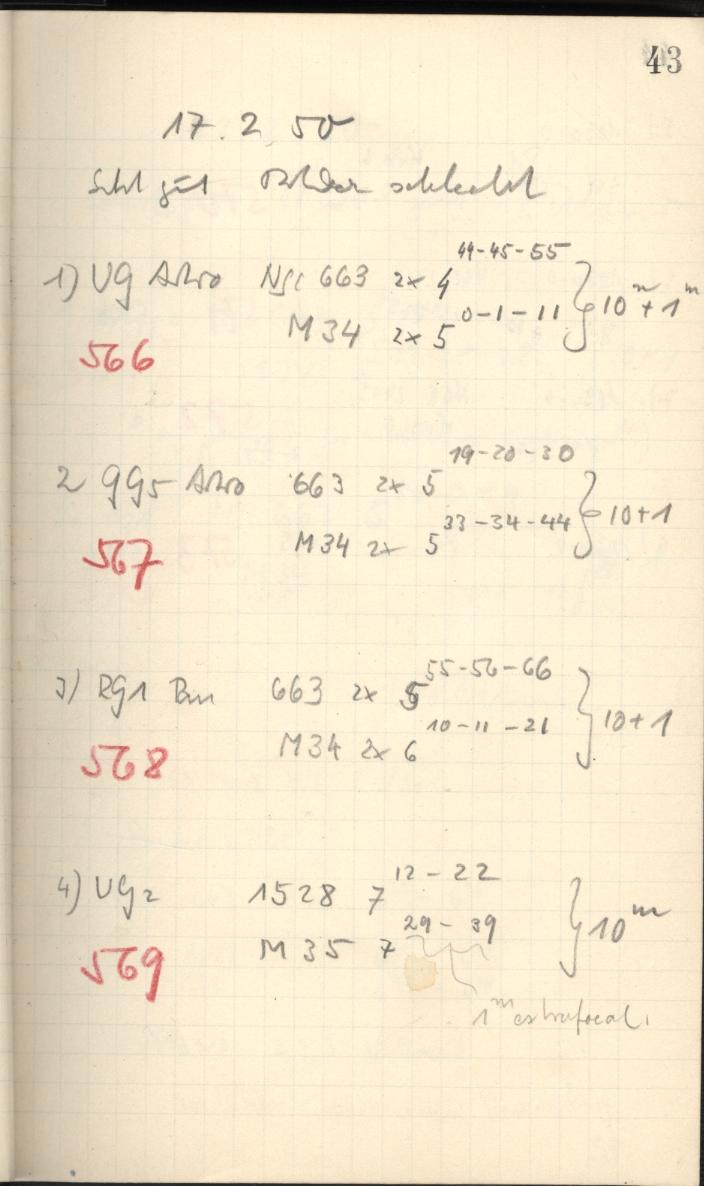 43
17. 2 50
Sicht gut Bilder schlecht
1) UG Astro NGC 663 2x 4 44-45-55 } 10m + 1m
M34 2x 5 0-1-11
566
2 GG5 Astro 663 2x 5 19-20-30 } 10+1
M34 2x 5 33-34-44
567
3) RG1 663 2x 5 55-56-66 } 10+1
M34 2x 6 10-11-21
568
4) UG2 1528 7 12-22 } 10m
M35 7 29-39
569
1m extrafocal.